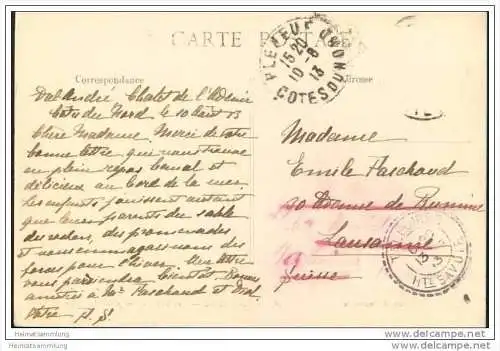 CARTE POSTALE
Correspondance
Adresse
PLENEUF
15 20
10 - 8
13
COTES DU NORD
Val André Chalet de l'Avenir
Cotes du Nord le 10 Août 13
Chère Madame. Merci de votre
bonne lettre qui nous trouve
en plein repos banal et
délicieux au bord de la mer.
Les enfants jouissent autant
que leurs parents du sable
des rochers, des promenades
et nous emmagasinons des
forces pour l'hiver. Une lettre
vous parviendra bientôt. Bonnes
amitiés à Mr Paschoud et
Votre
Madame
Emile Paschoud
20 Avenue de Rumine
Lausanne
Suisse
HTE SAVOIE
Heimatsammlung
Heimatsammlung